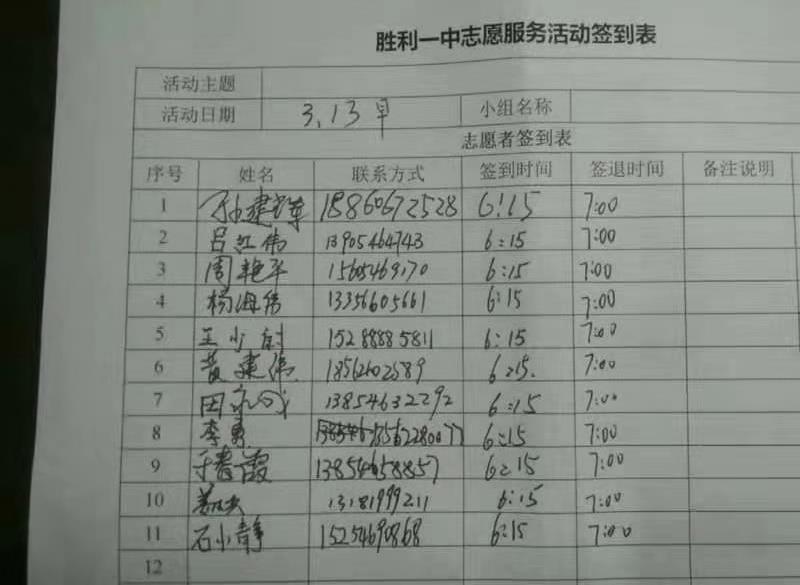 胜利一中志愿服务活动签到表
活动主题
活动日期 3.13早 小组名称
志愿者签到表
序号 姓名 联系方式 签到时间 签退时间 备注说明
1 孙建军 18860672528 6:15 7:00
2 吕红伟 13905464743 6:15 7:00
3 周艳平 15605469170 6:15 7:00
4 杨海伟 13356605661 6:15 7:00
5 王少 15288885811 6:15 7:00
6 黄建伟 18562602589 6:15. 7:00
7 田永成 13854632292 6:15 7:00
8 李勇 6:15 7:00
9 于春霞 13854658857 6:15 7:00
10 13181999211 6:15 7:00
11 石小静 15254690868 6:15 7:00
12